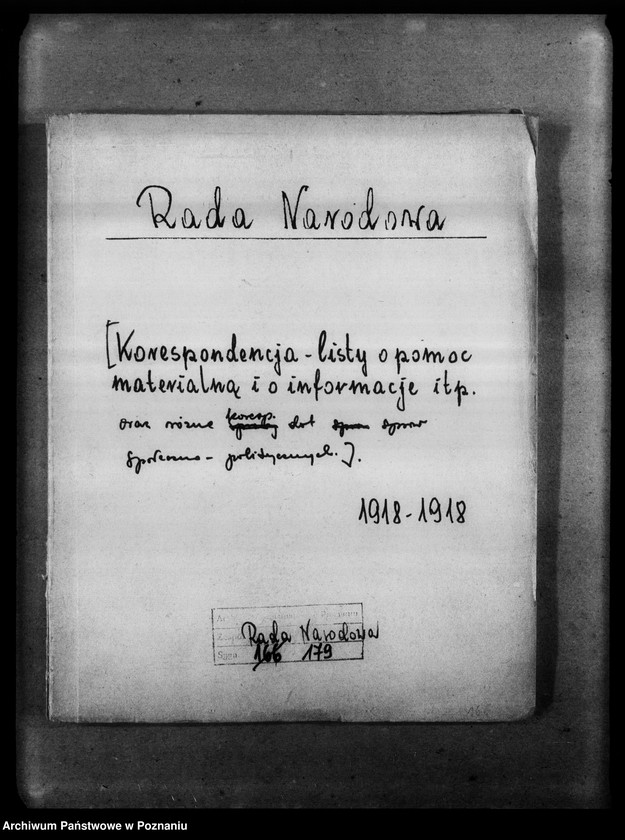 Rada Narodowa
[Korespondencja - listy o pomoc
materialną i o informacje itp.
oraz różne koresp. dot spraw
społeczno - politycznych.].
1918-1918
Rada Narodowa
Sygn. 166 179
Archiwum Państwowe w Poznaniu